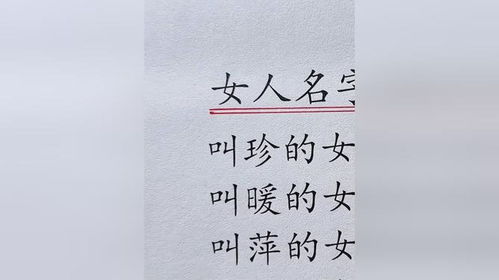 女人名字
叫珍的女
叫暖的女
叫萍的女